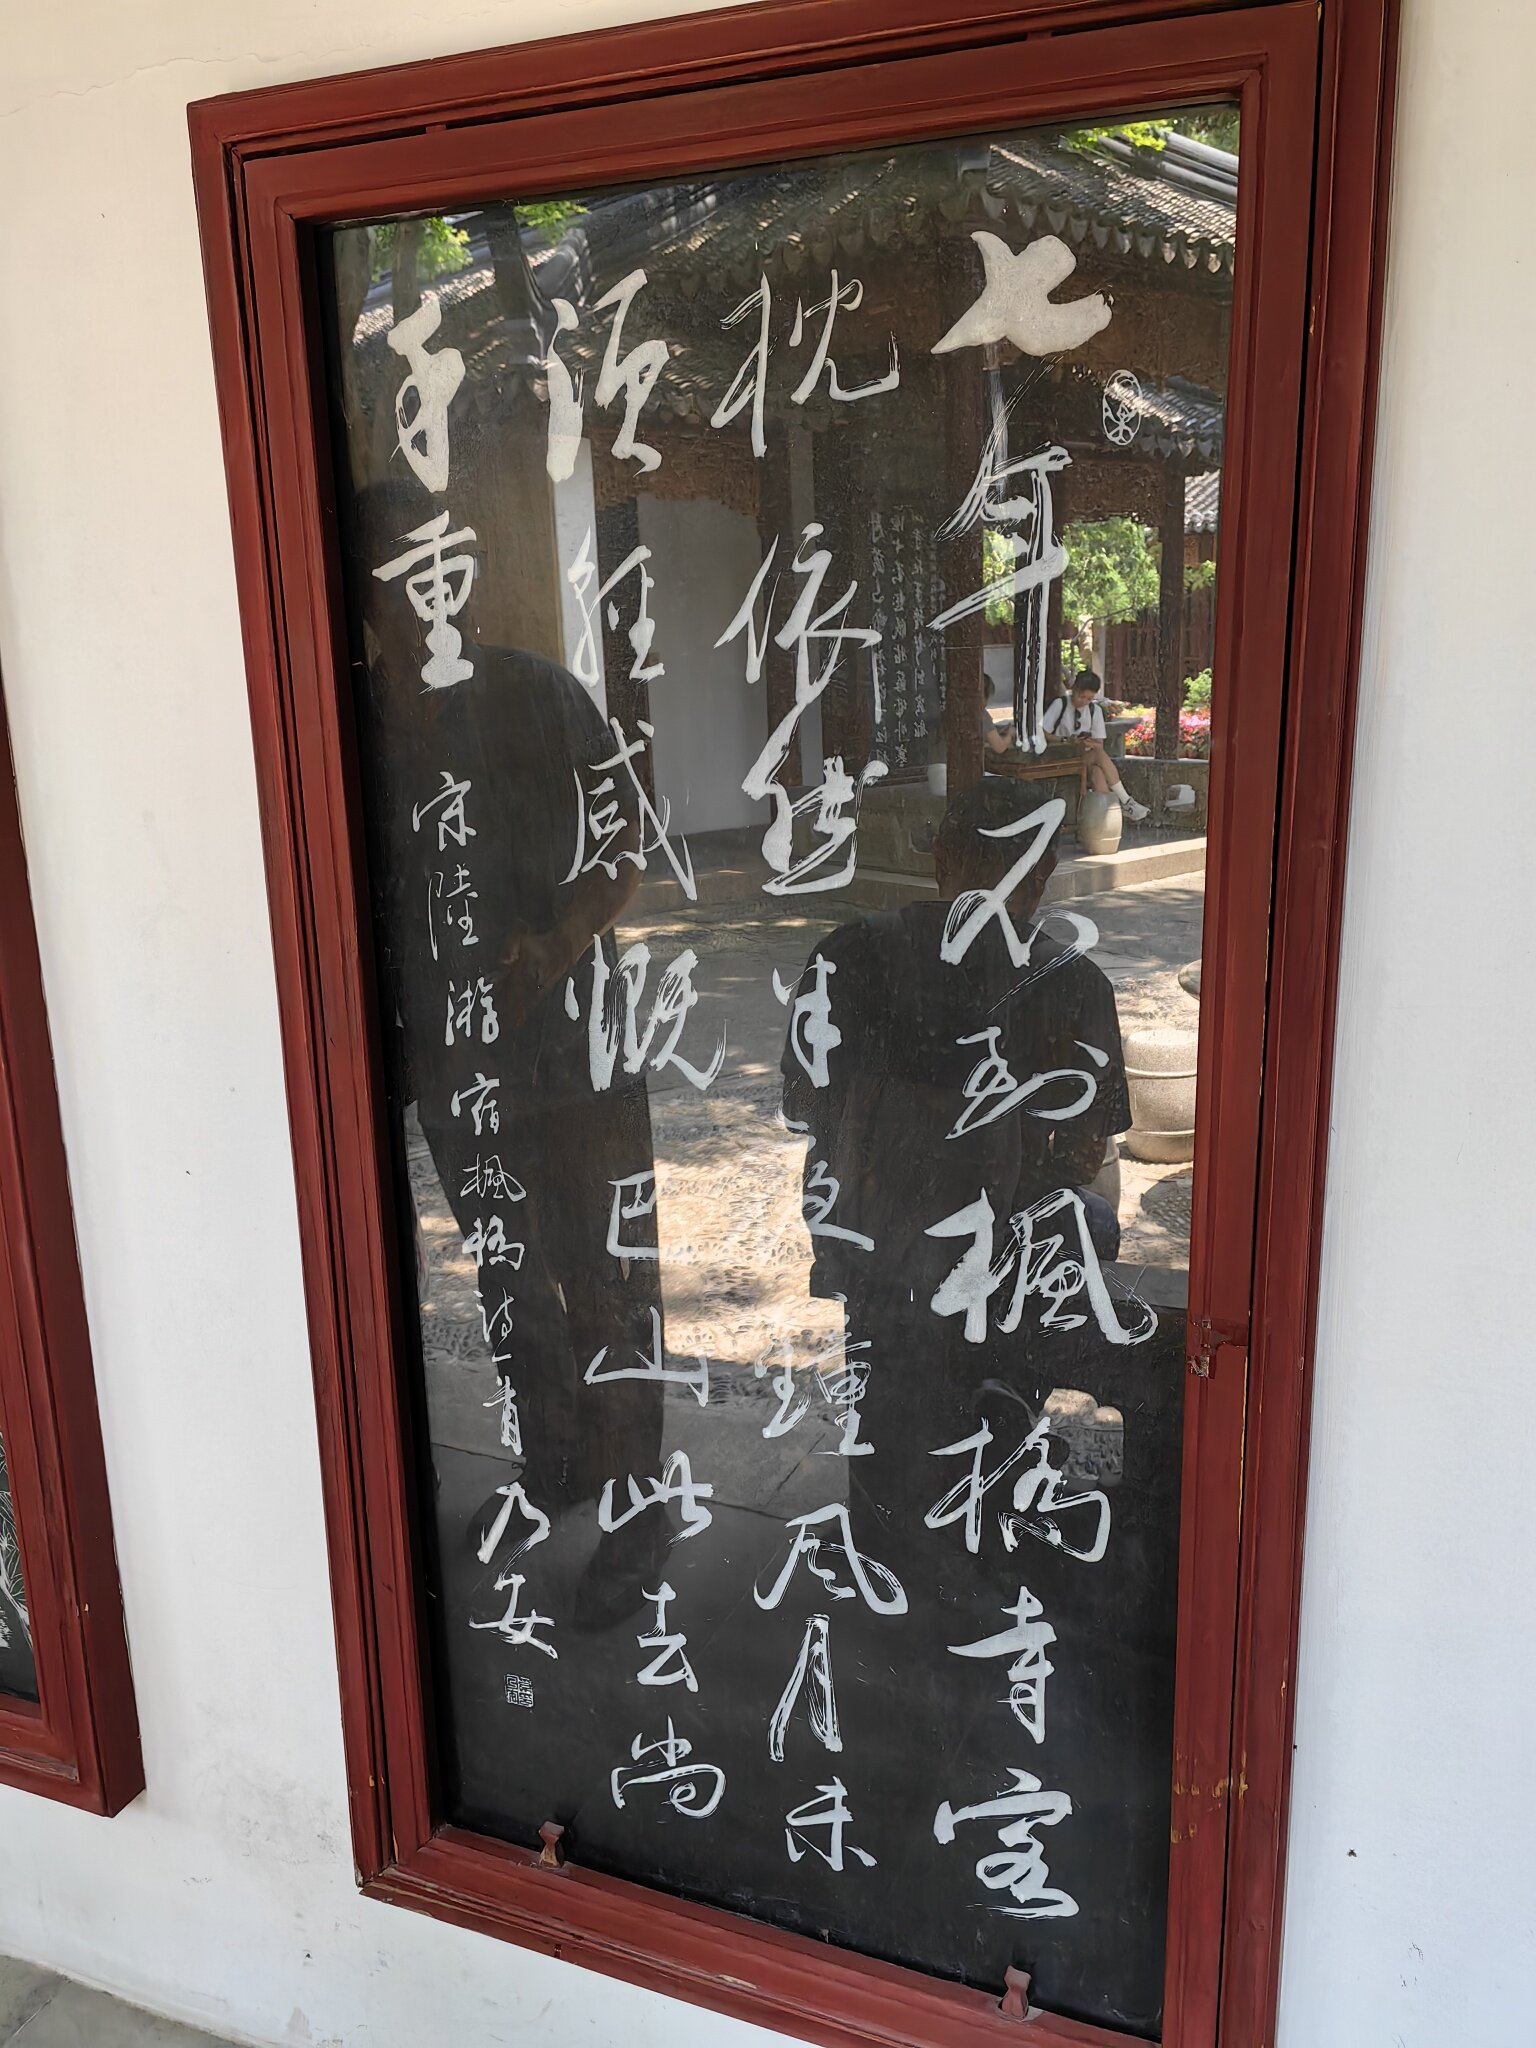 七年不到楓橋寺客
枕依然半夜鐘風月未
須輕感慨巴山此去尚
千重
宋陸游宿楓橋詩一首
乃安